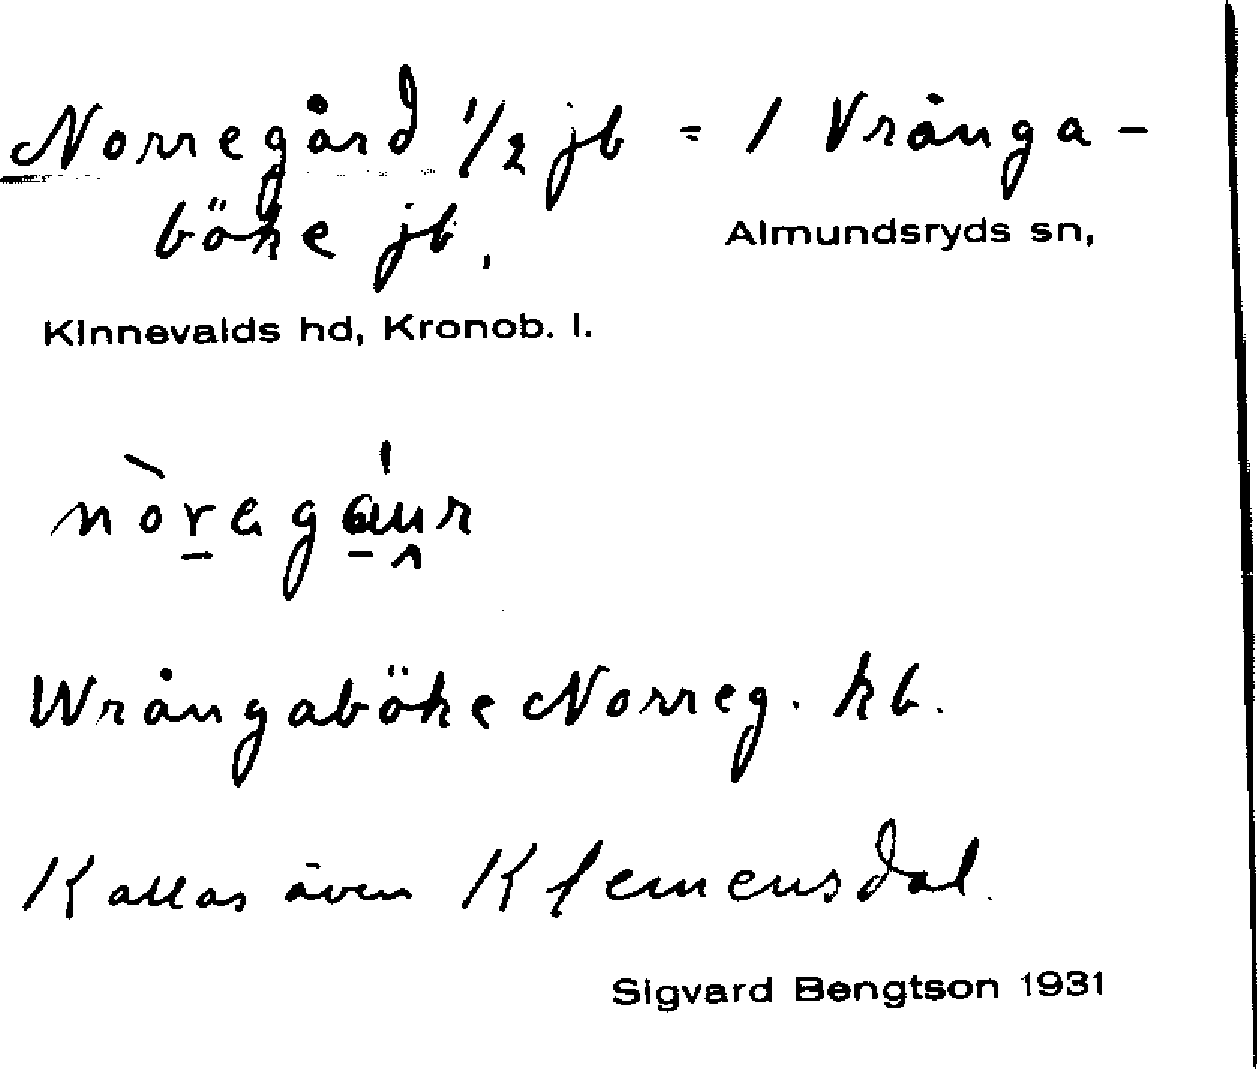 Norregård 1/2 jb = 1 Vrånga-
böke jb.
Almundsryds sn,
Kinnevalds hd, Kronob. l.
nòregáur
Wrångaböke Norreg. kb.
Kallas även Klemensdal.
Sigvard Bengtson 1931